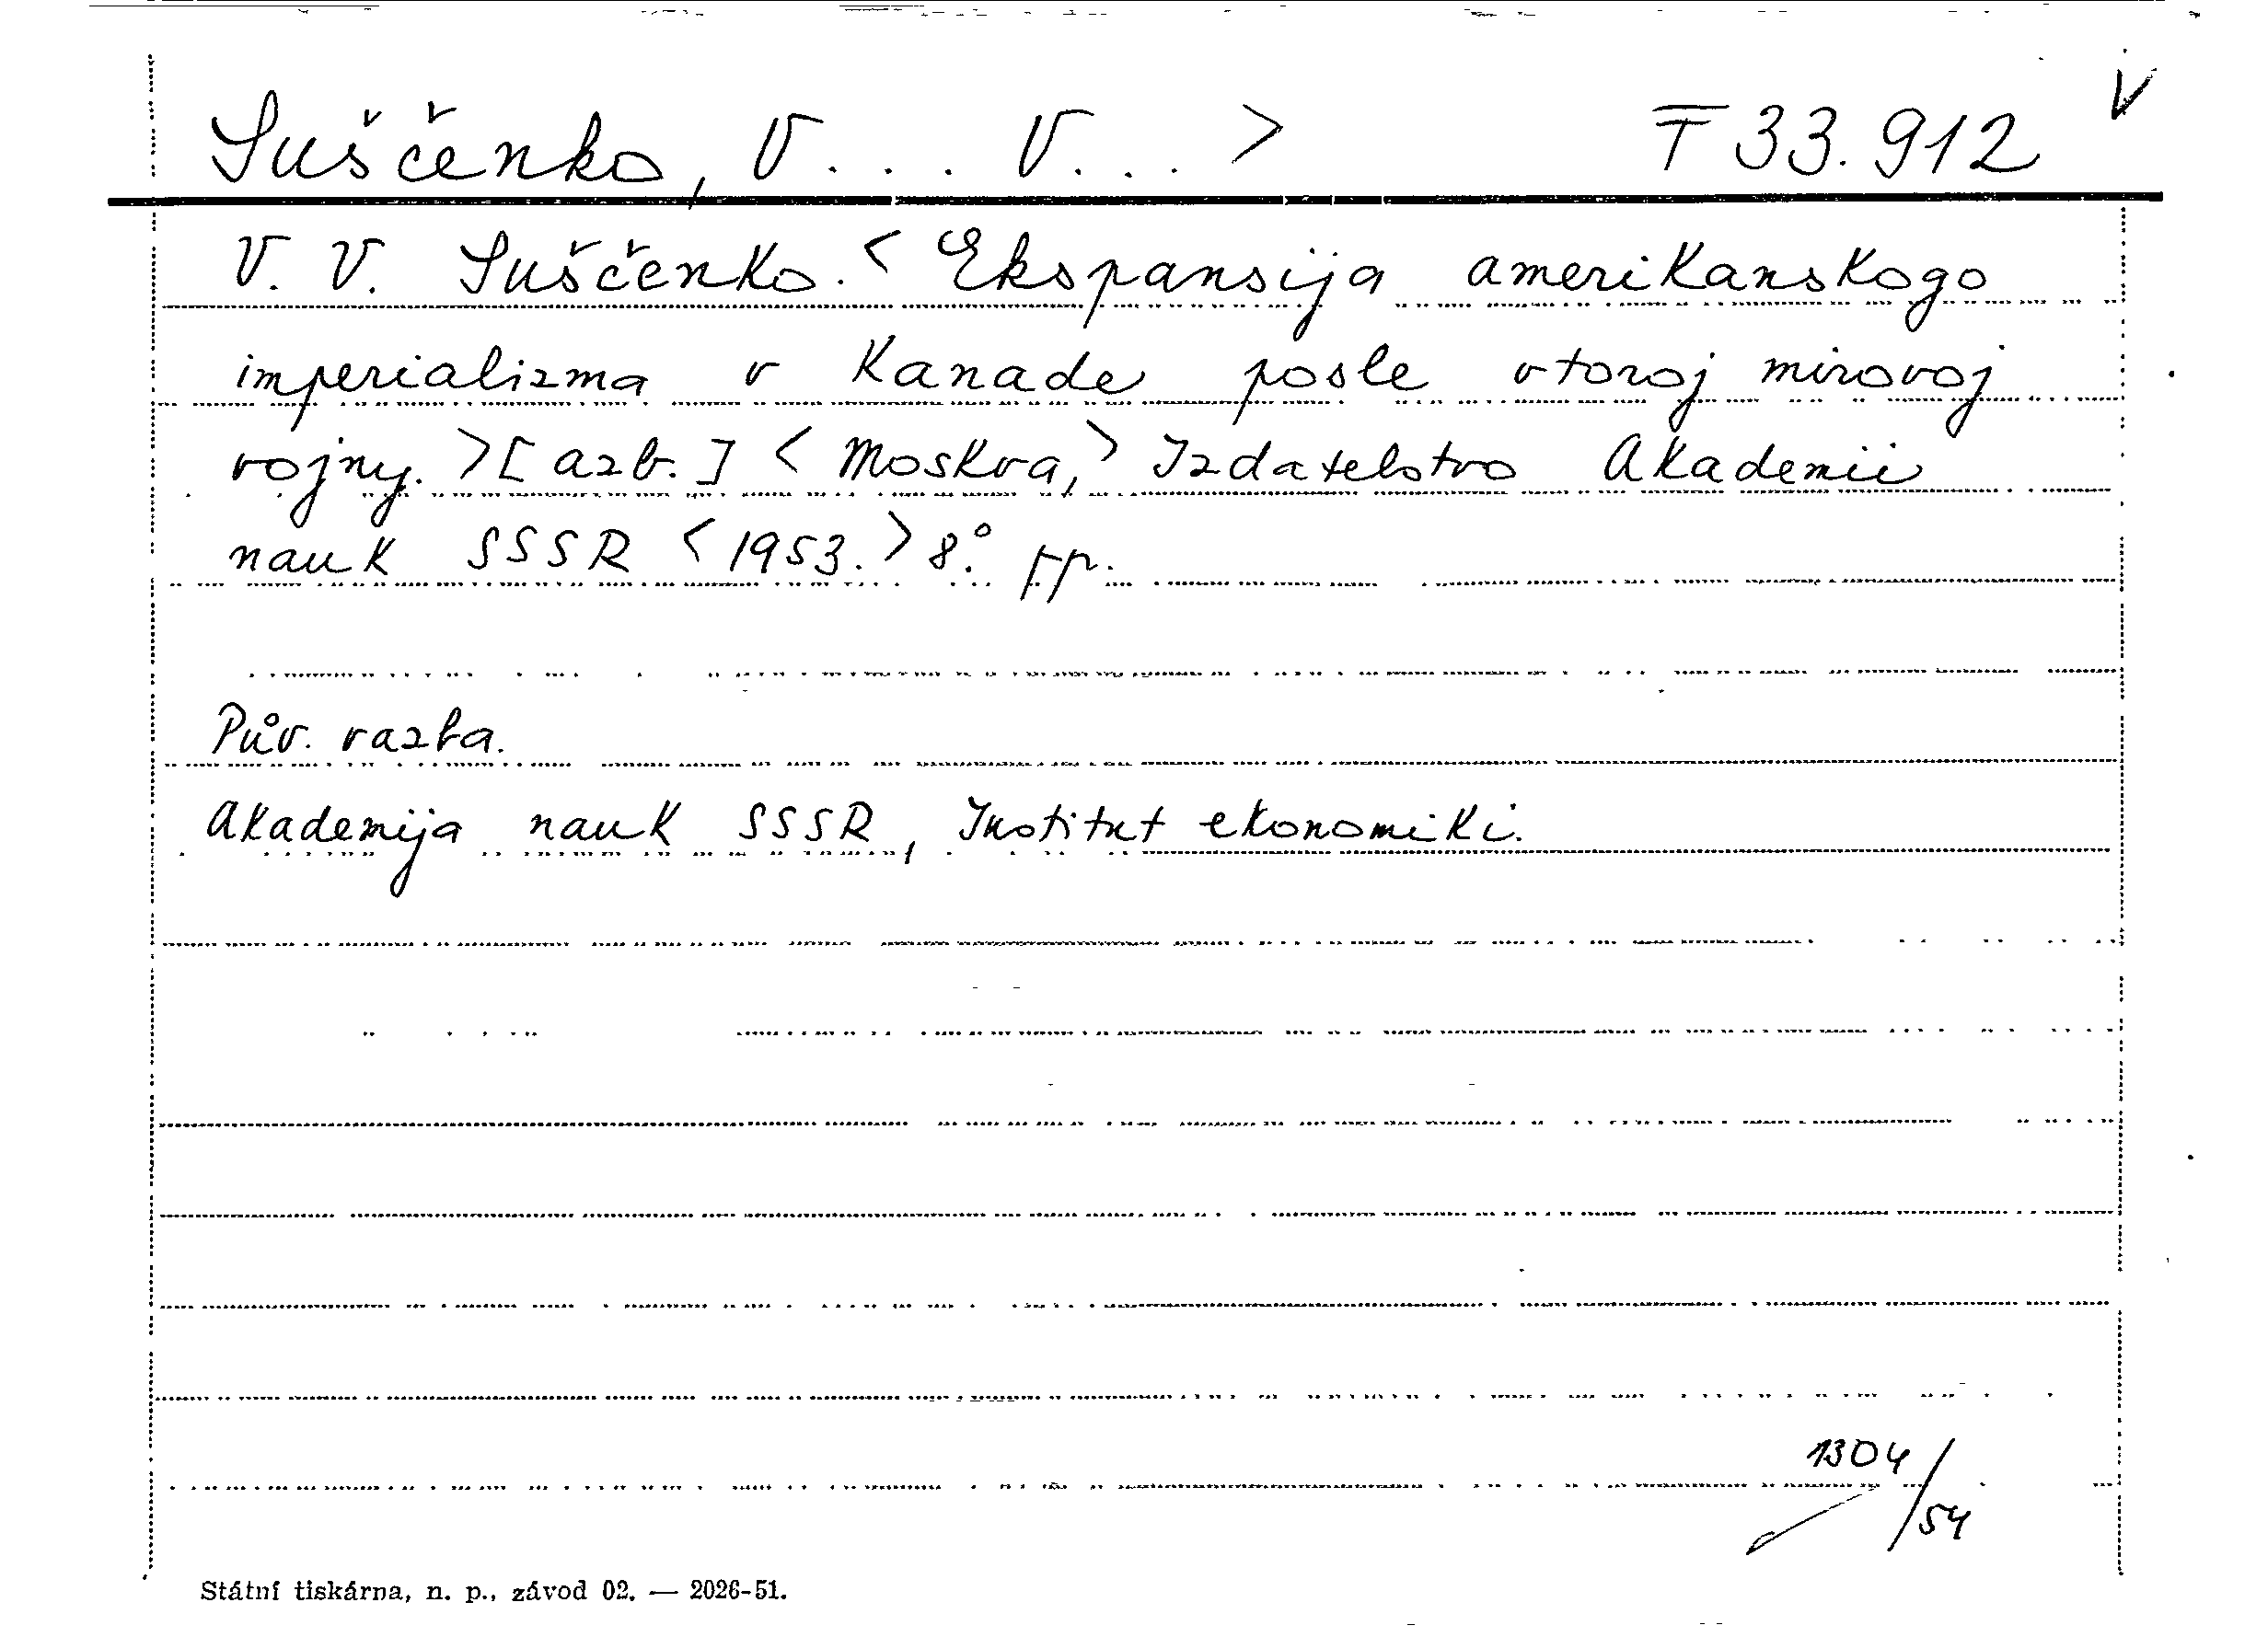 Suščenko, V... V... > T 33.912 V
V. V. Suščenko. < Ekspansija amerikanskogo
imperializma v Kanade posle vtoroj mirovoj
vojny. > [azb.] < Moskva, > Izdatelstvo Akademii
nauk SSSR < 1953. > 8°. pp.
Pův. vazba.
Akademija nauk SSSR, Institut ekonomiki.
1304/54
Státní tiskárna, n. p., závod 02. — 2026-51.